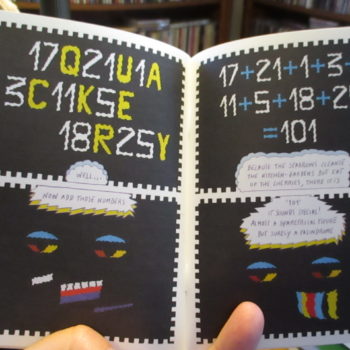 17Q21U1A
3C11K5E
18R25Y
WELL...
NOW ADD THOSE NUMBERS
17+21+1+3+
11+5+18+2
=101
BECAUSE THE SPARROWS CLEANSE
THE KITCHEN-GARDENS BUT EAT
UP THE CHERRIES,
"101"
IT SOUNDS SPECIAL!
ALMOST A FIGURE
BUT SURELY A PALINDROME